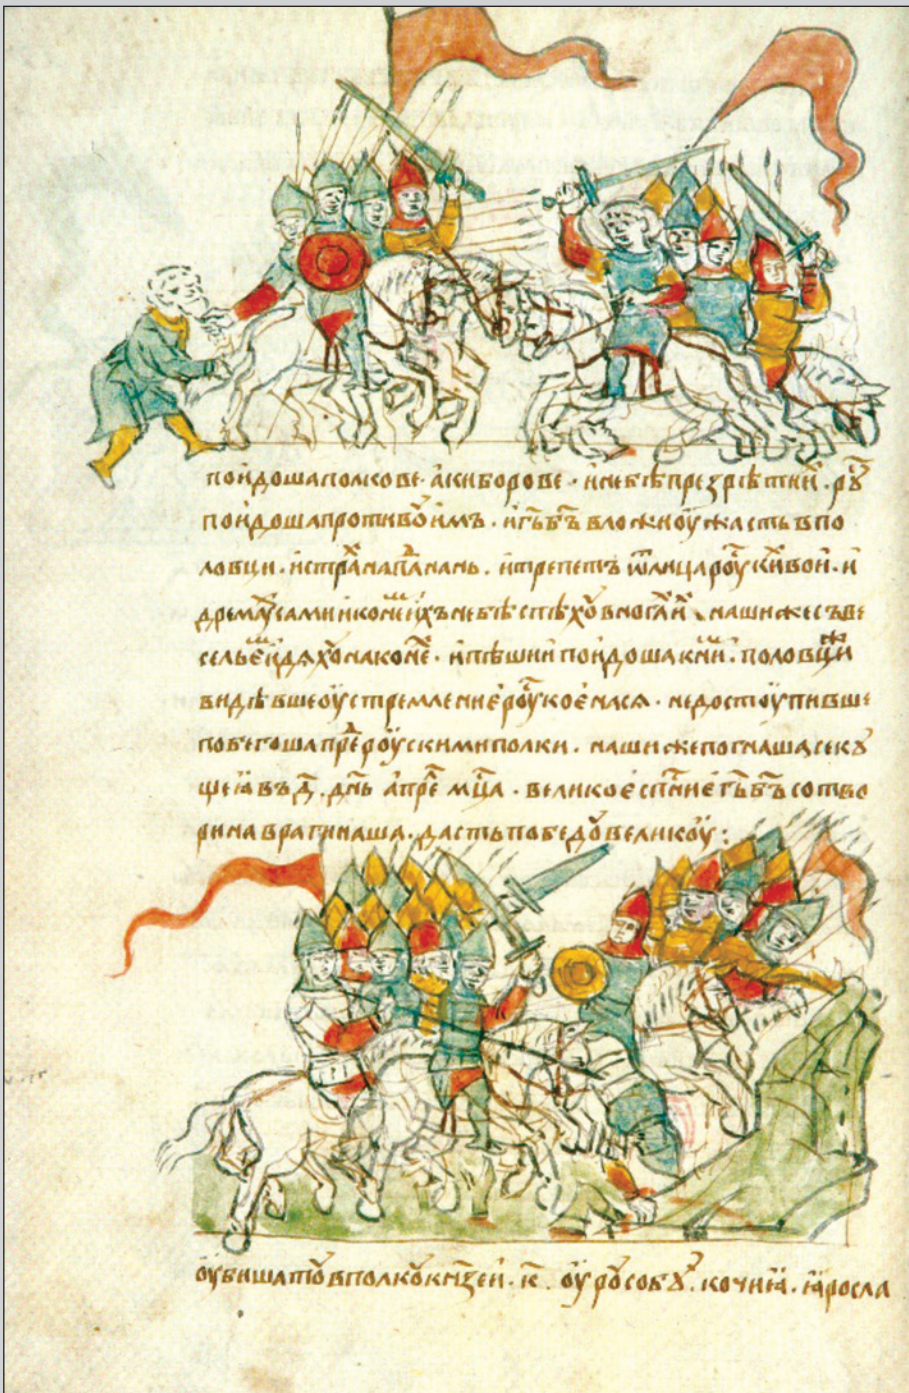 поидоша полкове · аки борове · и не бѣ презрѣти и · рꙋⷭ
поидоша противꙋ имъ · и гь҃ бъ҃ вложи оужасть в по
ловци · и страⷯ напаⷣ на нь · и трепетъ ѿ лица роуⷭкиⷯ вои · и
дремаⷯꙋ сами и конеⷨ иⷯъ не бѣ спѣхꙋ в ногаⷯ · наши же съ ве
сельеⷨ идяхꙋ на конеⷯ · и пѣшии поидоша к ниⷨ · половци же
видѣвше оустремление роуⷭкое на ся · не достоупивше
побегоша преⷣ роускими полки · наши же погнаша секꙋ
ще ꙗ въ д҃ · днь҃ апреⷧ мцⷭа · великое спⷭние гь҃ бъ҃ сотво
ри на враги наша · дасть победꙋ великоу :
оубиша тоу в полкꙋ кнѕ҃еи · к҃ · оуроусобꙋ · кочиꙗ · ꙗросла